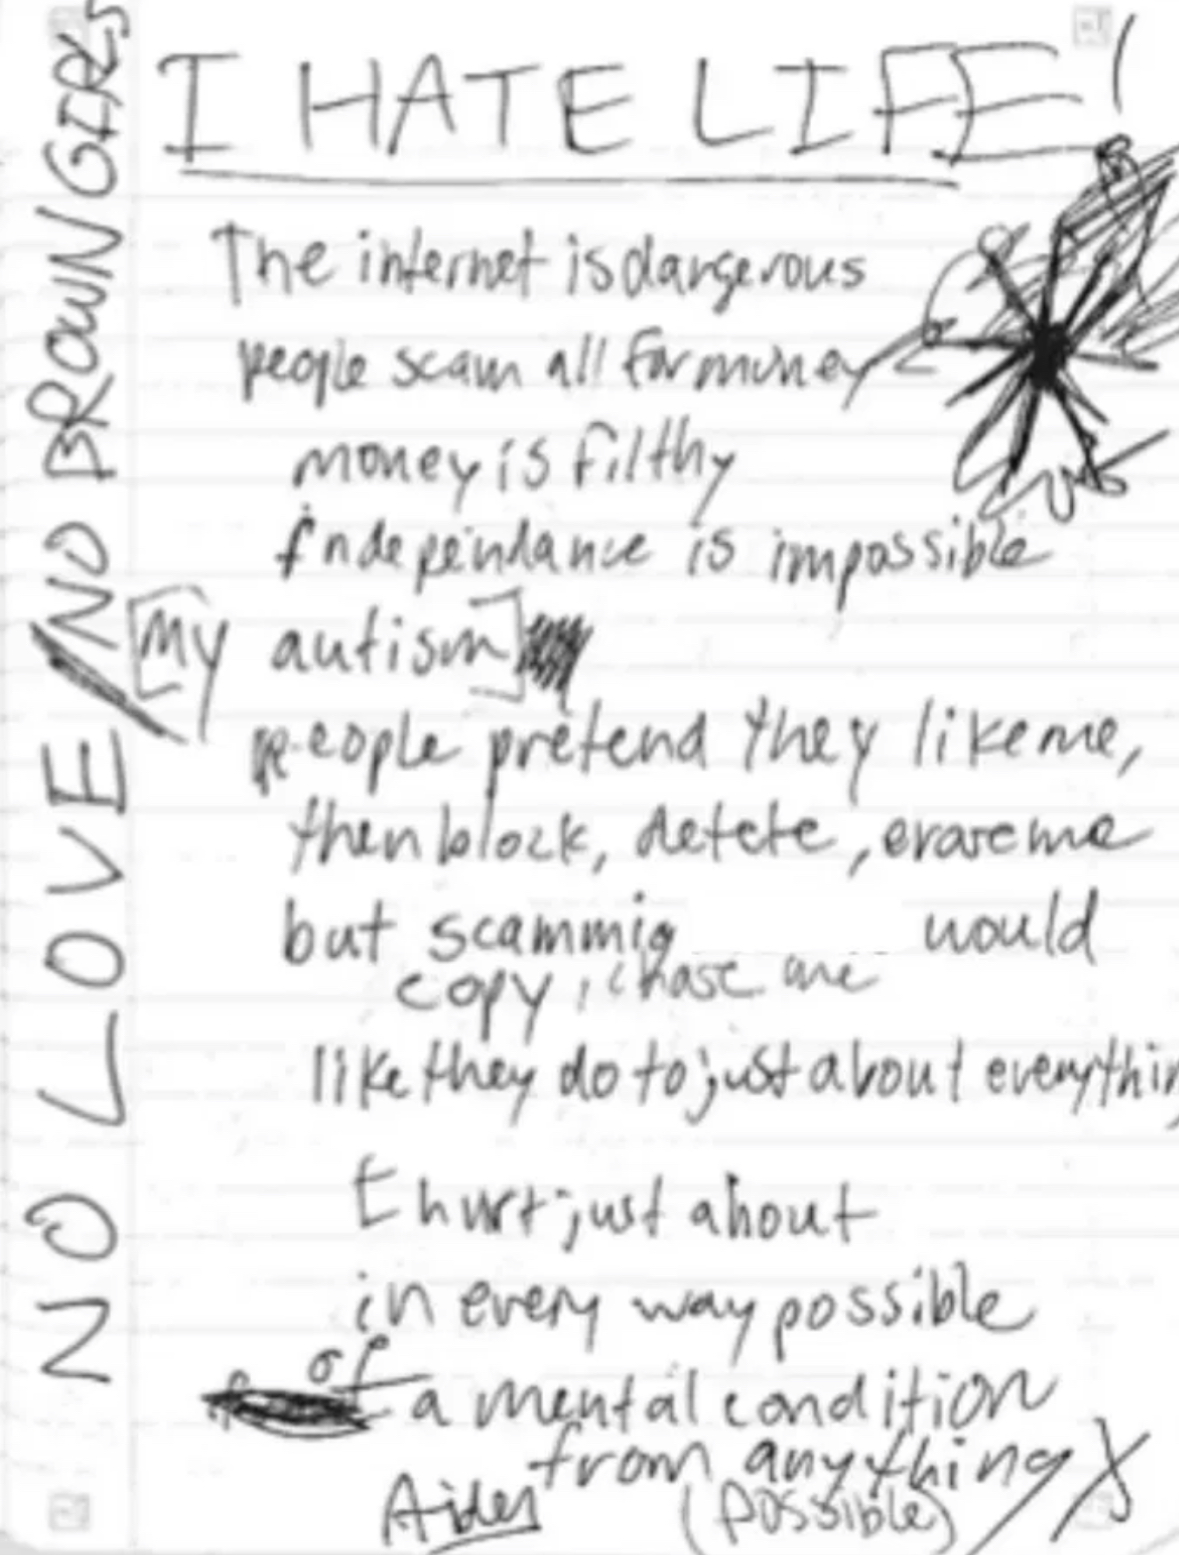 I HATE LIFE!
The internet is dangerous
people scam all for money
money is filthy
independance is impossible
[My autism]
people pretend they like me,
then block, detete, erase me
but scammig would
copy, chase me
like they do to just about everythin
I hurt just about
in every way possible
of
a mental condition
from anything
(possible)
Aiden
NO LOVE/NO BROWN GIRLS